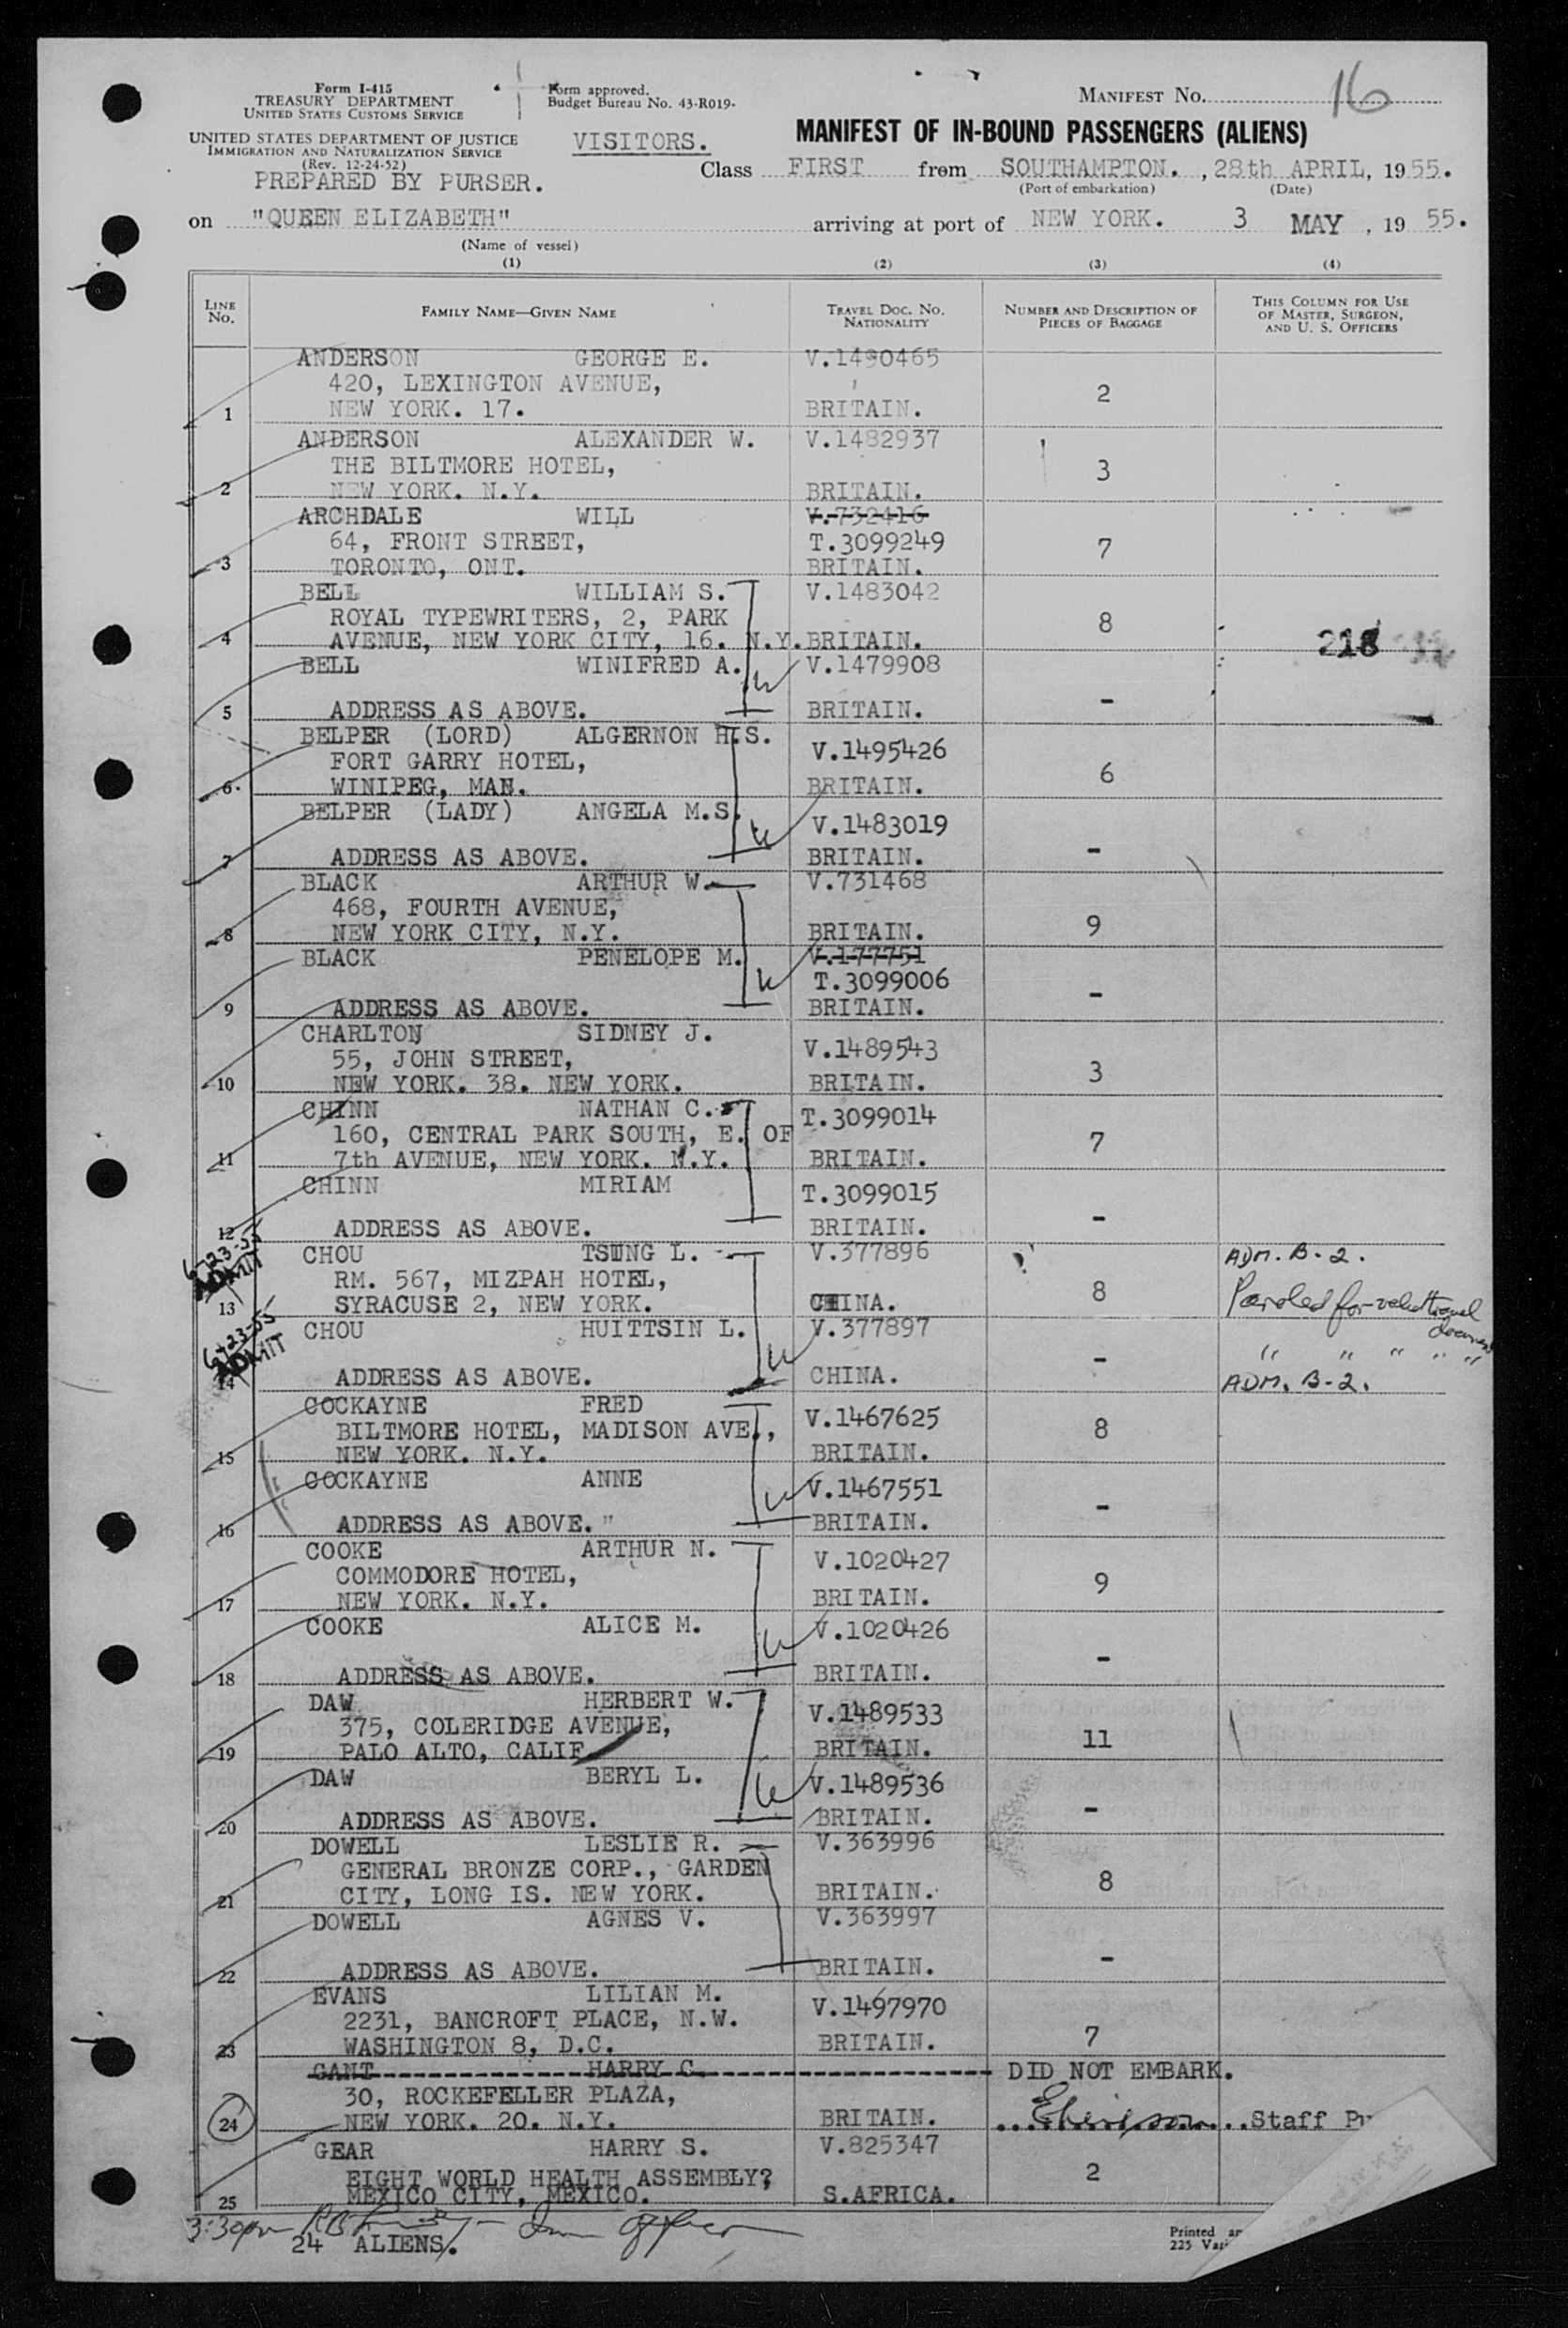 Form I-415
TREASURY DEPARTMENT
UNITED STATES CUSTOMS SERVICE
UNITED STATES DEPARTMENT OF JUSTICE
IMMIGRATION AND NATURALIZATION SERVICE
(Rev. 12-24-52)
PREPARED BY PURSER.
Form approved.
Budget Bureau No. 43-R019.
VISITORS.
MANIFEST NO. 16
MANIFEST OF IN-BOUND PASSENGERS (ALIENS)
Class FIRST from SOUTHAMPTON. , 28th APRIL, 1955.
(Port of embarkation) (Date)
on "QUEEN ELIZABETH" arriving at port of NEW YORK. 3 MAY , 19 55.
(Name of vessel)
(1) (2) (3) (4)
LINE NO. FAMILY NAME—GIVEN NAME TRAVEL DOC. NO. NATIONALITY NUMBER AND DESCRIPTION OF PIECES OF BAGGAGE THIS COLUMN FOR USE OF MASTER, SURGEON, AND U. S. OFFICERS
ANDERSON GEORGE E. V.1490465
420, LEXINGTON AVENUE, 2
1 NEW YORK. 17. BRITAIN.
ANDERSON ALEXANDER W. V.1482937
THE BILTMORE HOTEL, 3
2 NEW YORK. N.Y. BRITAIN.
ARCHDALE WILL V.732416
64, FRONT STREET, T.3099249 7
3 TORONTO, ONT. BRITAIN.
BELL WILLIAM S. V.1483042
ROYAL TYPEWRITERS, 2, PARK 8
4 AVENUE, NEW YORK CITY, 16. N.Y. BRITAIN. 218
BELL WINIFRED A. V.1479908
5 ADDRESS AS ABOVE. BRITAIN. -
BELPER (LORD) ALGERNON H.S. V.1495426
FORT GARRY HOTEL, 6
6 WINIPEG, MAN. BRITAIN.
BELPER (LADY) ANGELA M.S. V.1483019
7 ADDRESS AS ABOVE. BRITAIN. -
BLACK ARTHUR W. V.731468
468, FOURTH AVENUE, 9
8 NEW YORK CITY, N.Y. BRITAIN.
BLACK PENELOPE M. V.177751
T.3099006 -
9 ADDRESS AS ABOVE. BRITAIN.
CHARLTON SIDNEY J. V.1489543
55, JOHN STREET, 3
10 NEW YORK. 38. NEW YORK. BRITAIN.
CHINN NATHAN C. T.3099014
160, CENTRAL PARK SOUTH, E. OF 7
11 7th AVENUE, NEW YORK. N.Y. BRITAIN.
CHINN MIRIAM T.3099015
12 ADDRESS AS ABOVE. BRITAIN. -
6-23-55 ADMIT
CHOU TSUNG L. V.377896 ADM. B-2.
RM. 567, MIZPAH HOTEL, 8 Paroled for
13 SYRACUSE 2, NEW YORK. CHINA.
6-23-55 ADMIT
CHOU HUITTSIN L. V.377897 " " " " "
14 ADDRESS AS ABOVE. CHINA. - ADM. B-2.
COCKAYNE FRED V.1467625
BILTMORE HOTEL, MADISON AVE., 8
15 NEW YORK. N.Y. BRITAIN.
COCKAYNE ANNE V.1467551
16 ADDRESS AS ABOVE." BRITAIN. -
COOKE ARTHUR N. V.1020427
COMMODORE HOTEL, 9
17 NEW YORK. N.Y. BRITAIN.
COOKE ALICE M. V.1020426
18 ADDRESS AS ABOVE. BRITAIN. -
DAW HERBERT W. V.1489533
375, COLERIDGE AVENUE, 11
19 PALO ALTO, CALIF BRITAIN.
DAW BERYL L. V.1489536
20 ADDRESS AS ABOVE. BRITAIN. -
DOWELL LESLIE R. V.363996
GENERAL BRONZE CORP., GARDEN 8
21 CITY, LONG IS. NEW YORK. BRITAIN.
DOWELL AGNES V. V.363997
22 ADDRESS AS ABOVE. BRITAIN. -
EVANS LILIAN M. V.1497970
2231, BANCROFT PLACE, N.W. 7
23 WASHINGTON 8, D.C. BRITAIN.
GANT HARRY C. DID NOT EMBARK.
30, ROCKEFELLER PLAZA,
24 NEW YORK. 20. N.Y. BRITAIN. Staff Pu
GEAR HARRY S. V.825347
EIGHT WORLD HEALTH ASSEMBLY? 2
25 MEXICO CITY, MEXICO. S.AFRICA.
3:30pm Officer
24 ALIENS.
Printed
225